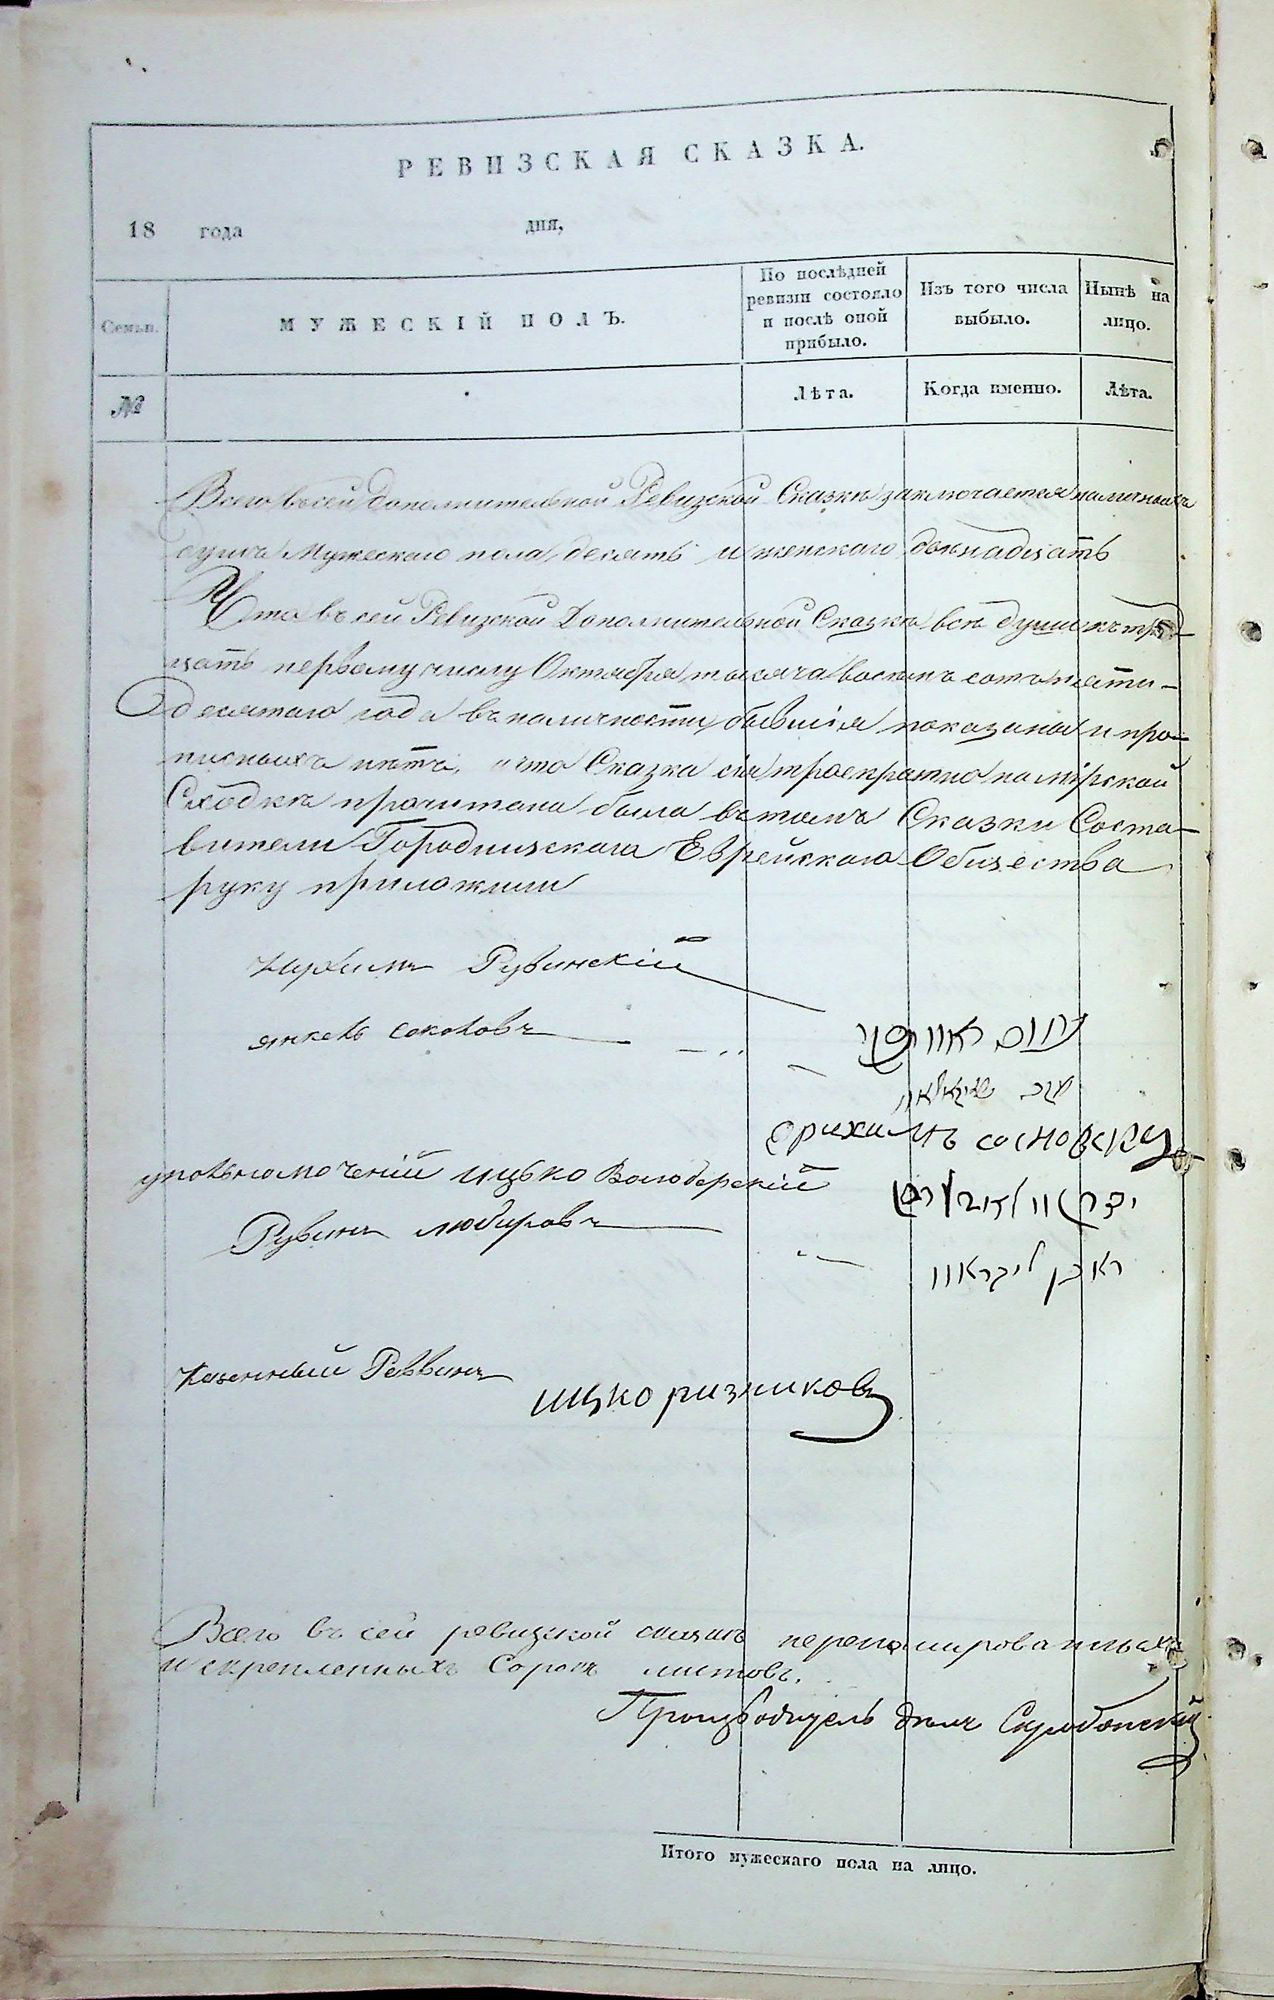 РЕВИЗСКАЯ СКАЗКА.
18 года дня,
Семьи.
МУЖЕСКІЙ ПОЛЪ.
По послѣдней ревизіи состояло и послѣ оной прибыло.
Изъ того числа выбыло.
Нынѣ на лицо.
№
Лѣта.
Когда именно.
Лѣта.
Всего въ сей дополнительной Ревизской Сказкѣ заключается наличныхъ
душъ Мужескаго пола десять и женскаго двѣнадцать
Что въ сей Ревизской Дополнительной Сказкѣ всѣ души къ трид
цать первому числу Октября тысяча восемь сотъ пяти-
десятаго года въ наличности бывшія показаны и про-
писныхъ нѣтъ, и что Сказка сія троекратно на мірской
Сходкѣ прочитана была въ томъ Сказки Соста-
вители Городищскаго Еврейскаго Общества
руку приложили
Рувинскій
янкель соколовъ
נחום ראווינסקי
сосновски
уполномоченій ицько Володерскій
Рувинъ любаровъ
Казенный Раввинъ
ицко ризниковъ
Всего въ сей ревизской сказкѣ перенумерованныхъ
и скрепленныхъ Сорокъ листовъ.
Производитель дѣлъ
Итого мужескаго пола на лицо.